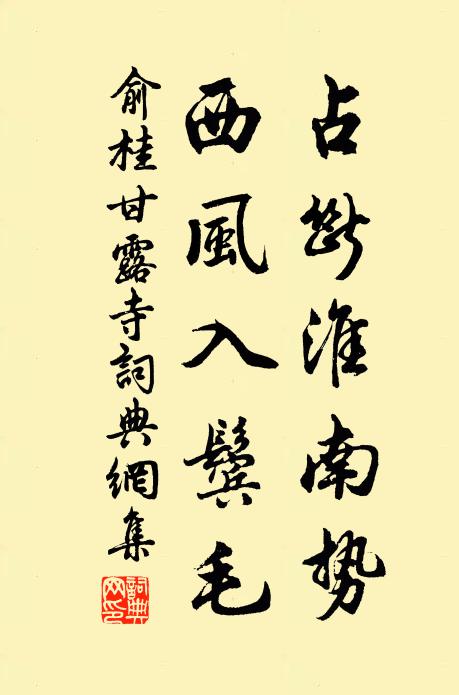 占断淮南势
西風入鬢毛
俞桂甘露寺詞典網集
詞典網印